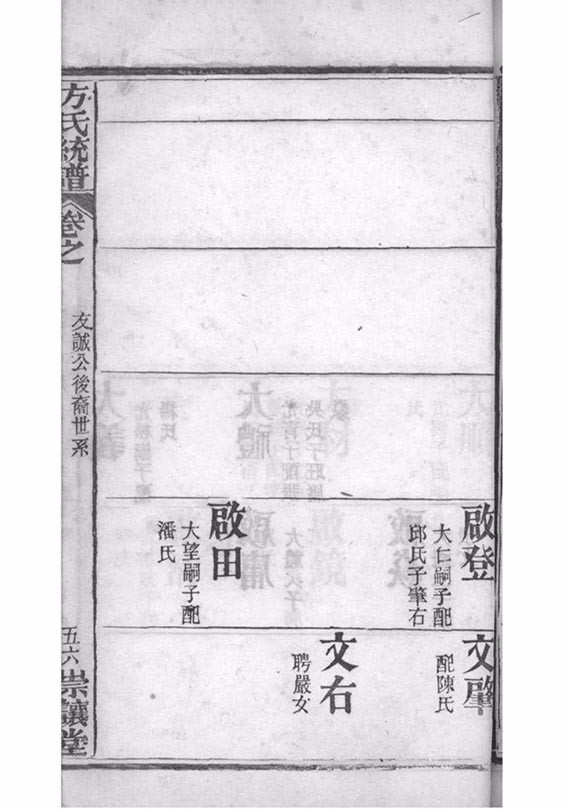 啟登
大仁嗣子配
邱氏子肇右
啟田
大望嗣子配
潘氏
文肇
配陳氏
文右
聘嚴女
方氏統譜
卷之
友誠公後裔世系
五六
崇讓堂